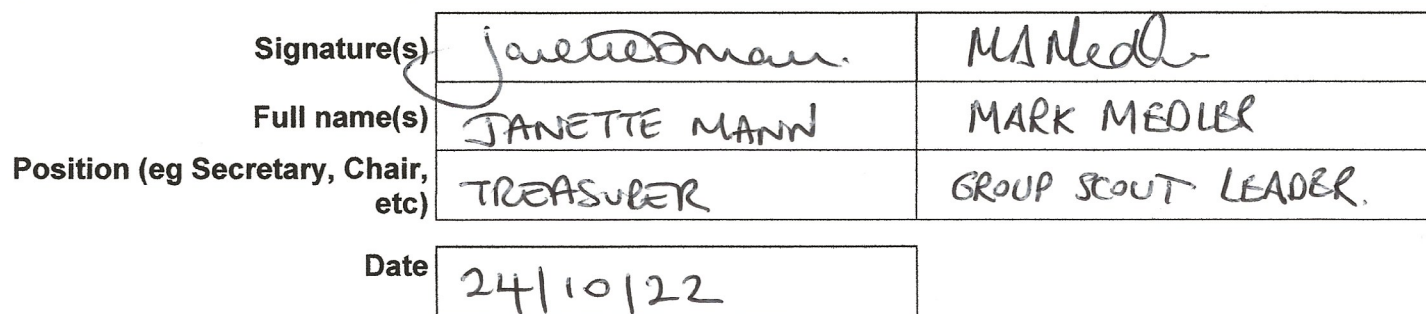 Signature(s) Janette Mann. MA Medler
Full name(s) JANETTE MANN MARK MEDLER
Position (eg Secretary, Chair,
etc) TREASURER GROUP SCOUT LEADER.
Date 24/10/22